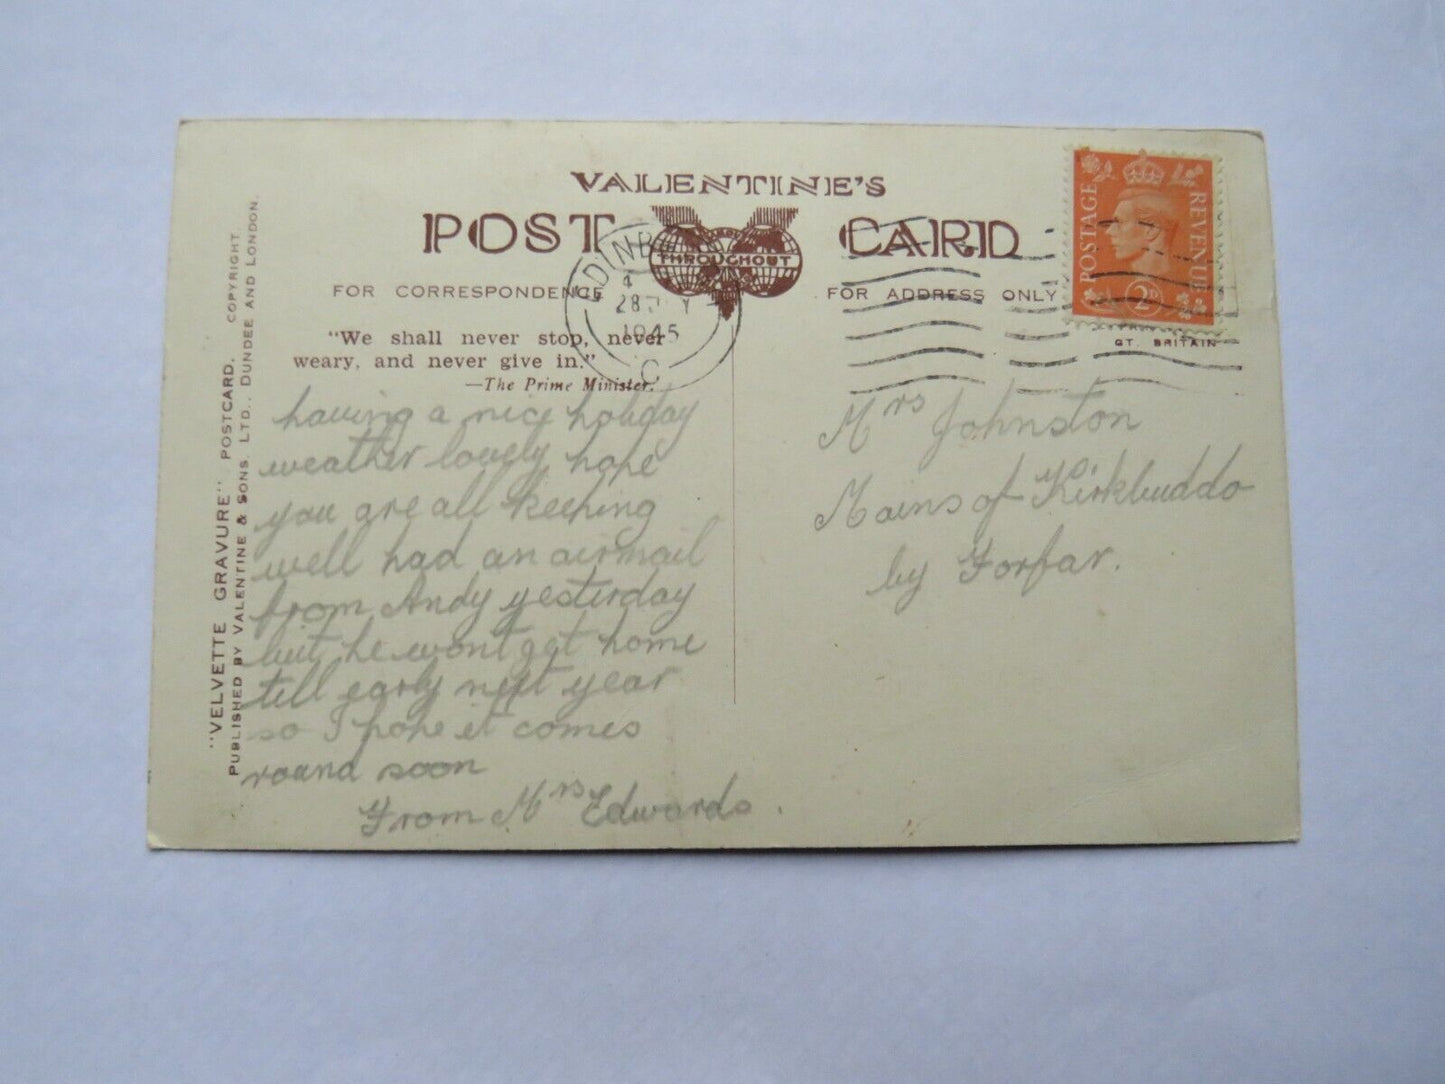 VALENTINE'S
POST CARD
THROUGHOUT
FOR CORRESPONDENCE
FOR ADDRESS ONLY
"We shall never stop, never
weary, and never give in."
—The Prime Minister.
having a nice holiday
weather lovely hope
you are all keeping
well had an airmail
from Andy yesterday
but he wont get home
till early next year
so I hope it comes
round soon
From Mrs Edwards.
Mrs Johnston
Mains of Kirkbuddo
by Forfar.
POSTAGE
REVENUE
2D
GT. BRITAIN
EDINB
4
28
Y
1945
C
"VELVETTE GRAVURE" POSTCARD. COPYRIGHT.
PUBLISHED BY VALENTINE & SONS, LTD., DUNDEE AND LONDON.